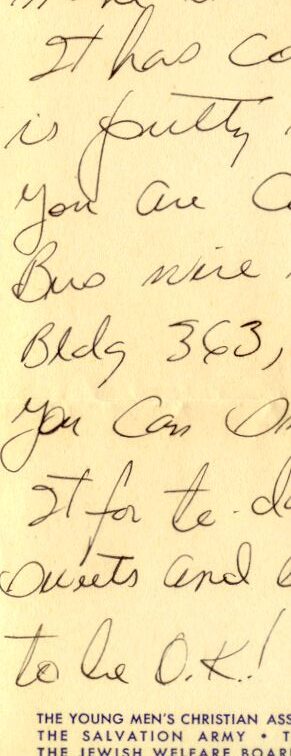 It has co
is pretty
You are C
Bus wire
Bldg 363,
You Can
It for te-da
Sweets and
to be O.K!
THE YOUNG MEN'S CHRISTIAN ASS
THE SALVATION ARMY • T
THE JEWISH WELFARE BOAR